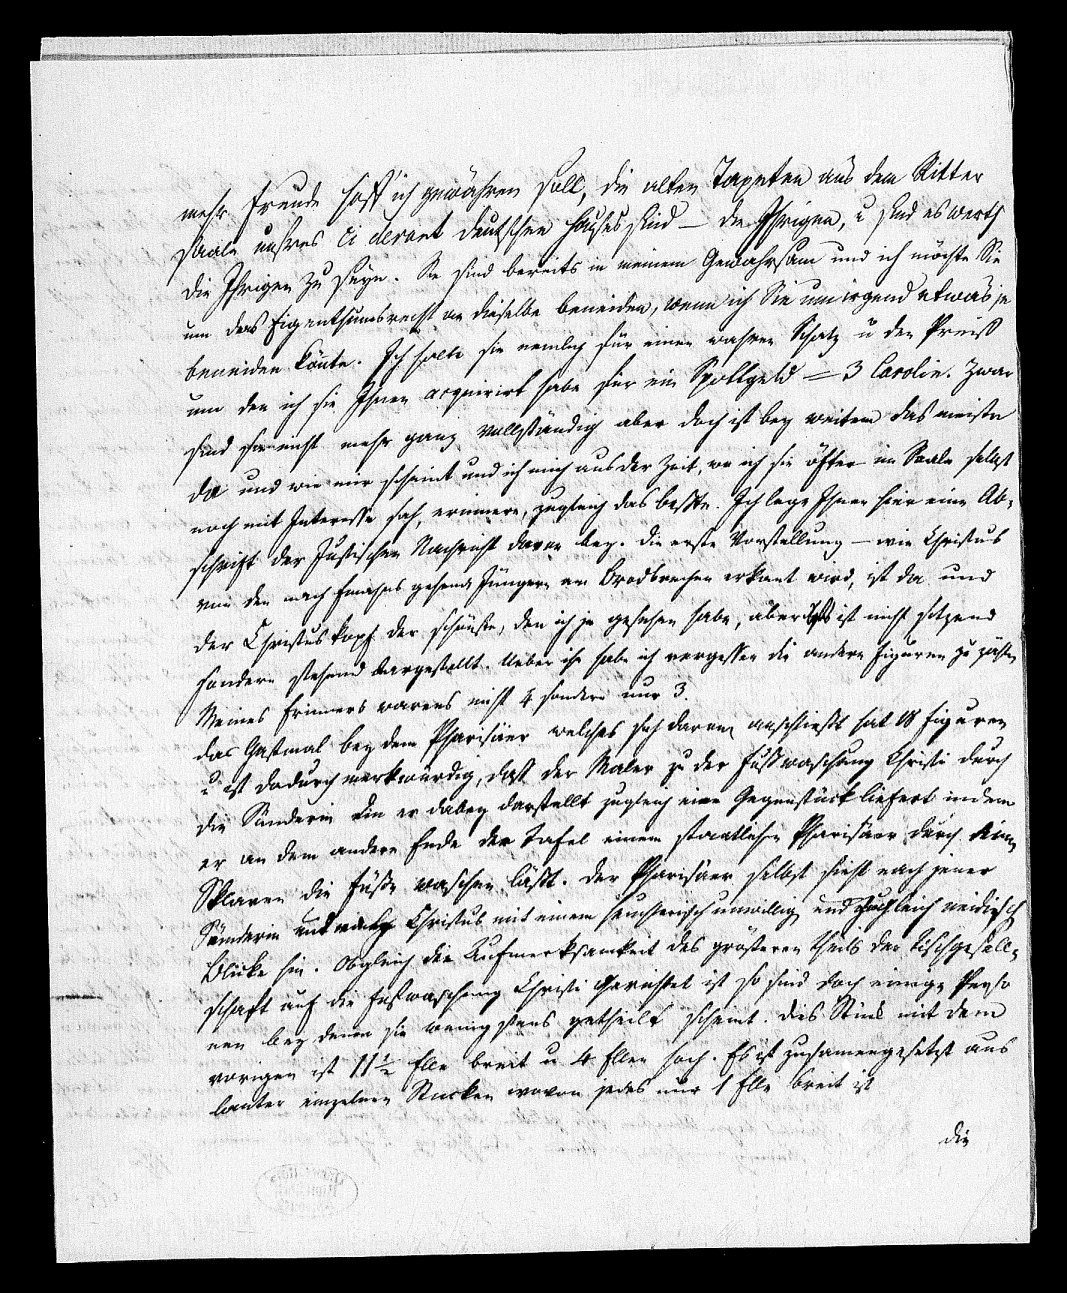 mehr Freude hoff' ich gewähren soll, die alten Tapeten aus dem Ritter
saale unsres ci devant deutschen Hauses sind — die Ihrigen, u sind es werth
die Ihrigen zu seyn. Sie sind bereits in meinem Gewahrsam und ich möchte Sie
um das Eigenthumsrecht an dieselbe beneiden, wenn ich Sie um irgend etwas je
beneiden könte. Ich halte sie nemlich für einen wahren Schatz u den Preiß
um den ich sie Ihnen acquirirt habe für ein Spottgeld = 3 Carolin. Zwar
sind sie nicht mehr ganz vollständig aber doch ist bey weitem das meiste
da und wie mir scheint und ich mich aus der Zeit, wo ich sie öfter im Saale selbst
noch mit Interesse sah, erinnere, zugleich das beste. Ich lege Ihnen hier eine Ab-
schrift der Justischen Nachricht davon bey. Die erste Vorstellung — wie Christus
von den nach Emahus gehend Jüngern am Brodbrechen erkant wird, ist da und
der Christuskopf der schönste, den ich je gesehen habe, aber ist nicht sitzend
sondern stehend dargestellt. Ueber ihr habe ich vergessen die andern Figuren zu zählen
Meines Erinners warens nicht 4 sondern nur 3.
das Gastmal bey dem Pharisäer welches sich daran anschließt hat 18 Figuren
u ist dadurch merkwürdig, daß der Maler zu der Fußwaschung Christi durch
die Sünderin die er dabey darstellt zugleich eine Gegenstück liefert indem
er an dem andern Ende der Tafel einem stattlichen Pharisäer durch seinen
Sklaven die Füße waschen läßt. Der Pharisäer selbst sieht nach jener
Sünderin und Christus mit einem unwillig und zugleich neidisch
Blicke hin. Obgleich die Aufmerksamkeit des größeren theils der Tischgesell-
schaft auf die Fußwaschung Christi gerichtet ist so sind doch einige Perso
nen bey denen sie wenigstens getheilt scheint. Dies Stück mit dem
vorigen ist 11½ Elle breit u 4 Ellen hoch. Es ist zusamengesetzt aus
lauter einzelnen Stucken wovon jedes nur 1 Elle breit ist
die